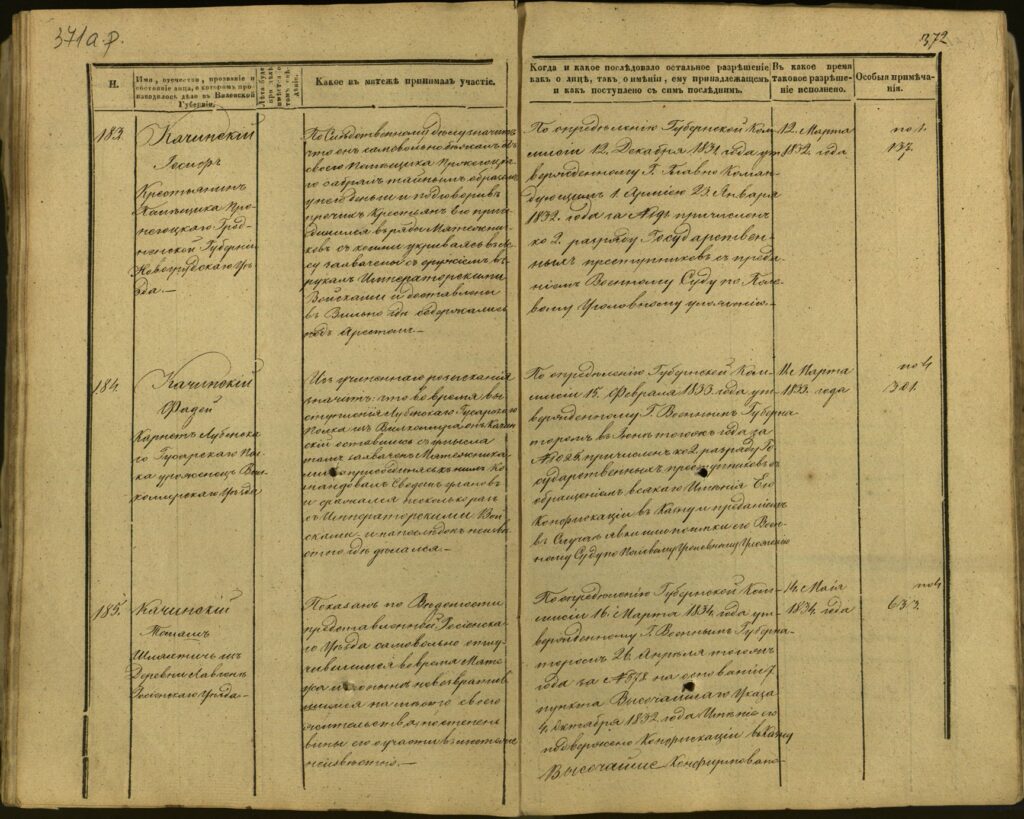 371 а.р.
372
Н.
Имя, отчество, прозвание и
состояние лица, о котором про-
изводилось дѣло в Виленской
Губерніи.
Какое въ мятежѣ принималъ участіе.
Когда и какое послѣдовало остальное разрѣшеніе
какъ о лицѣ, такъ о имѣніи, ему принадлежащемъ
и какъ поступлено съ симъ послѣднимъ.
Въ какое время
таковое разрѣше-
ніе исполнено.
Особыя примѣча-
нія.
183.
Качинскій
Іосифъ
Крестьянинъ
Помѣщика
Грод-
ненской Губерніи
Новогрудскаго Уѣ-
зда.—
По Слѣдственному дѣлу значится
что онъ самовольно бѣжалъ отъ
своего Помѣщика
го забралъ тайнымъ образомъ
деньги и подговоривъ
прочихъ Крестьянъ Его при-
соединился въ ряды Мятежни-
ковъ съ коими укривался въ лѣ-
су захвачены съ оружіемъ въ
рукахъ Императорскими
Войсками и доставлены
въ Вильно гдѣ содержались
подъ Арестомъ—
По опредѣленію Губернской Ком-
миссіи 12. Декабря 1831 года ут-
вержденному Г. Главно Коман-
дующимъ 1. Арміею 23. Января
1832. года за № причисленъ
ко 2. разряду Государствен-
ныхъ преступниковъ съ преда-
ніемъ Военному Суду по Поле-
вому Уголовному уложенію—
12. Марта
1832 года
по 1.
137.
184.
Качинскій
Фадей
Корнетъ Лубенска-
го Гусарскаго Пол-
ка уроженецъ Вил-
комирскаго Уѣзда
Изъ учиненнаго розысканія
значитъ: что во время вы-
ступленія Лубенскаго Гусарскаго
Полка изъ Вилкомира онъ Качин-
скій оставшись съ умысла
тамъ захваченъ Мятежника-
ми и присоединясь къ нимъ ко-
мандовалъ Сводомъ улановъ
и сражался несколько разъ
съ Императорскими Вой-
сками, и напослѣдокъ неизвѣ-
стно гдѣ дѣвался.—
По опредѣленію Губернской Ком-
миссіи 15. Февраля 1833 года ут-
вержденному Г. Военнымъ Губерна-
торомъ въ того года за
№ причисленъ ко 2. разряду Го-
сударственныхъ преступниковъ съ
обращеніемъ всякаго Имѣнія Его
Конфискаціи въ Казну и преданіемъ
въ Случаѣ явки или поимки его Воен-
ному Суду по Полевому Уголовному Уложенію
14. Марта
1833. года
по 4
301.
185.
Качинскій
Томашъ
Шляхтичъ изъ
Деревни
Росіенскаго Уѣзда—
Показанъ по Вѣдомости
представленной Росіенска-
го Уѣзда самовольно отлу-
чившимся во время Мяте-
жа и понынѣ невозвратив-
шимся на мѣсто своего
жительства, а степень
вины его и участи въ мятежѣ
неизвѣстно.—
По опредѣленію Губернской Ком-
миссіи 16. Марта 1834. года ут-
вержденному Г. Военнымъ Губерна-
торомъ 26. Апрѣля того
года за № на основаніи 7.
пункта Высочайшаго Указа
4. Октября 1832. года Имѣніе его
подвержено Конфискаціи въ Казну
Высочайше Конфирмовано
14. Маія
1834. года
по 4
633.